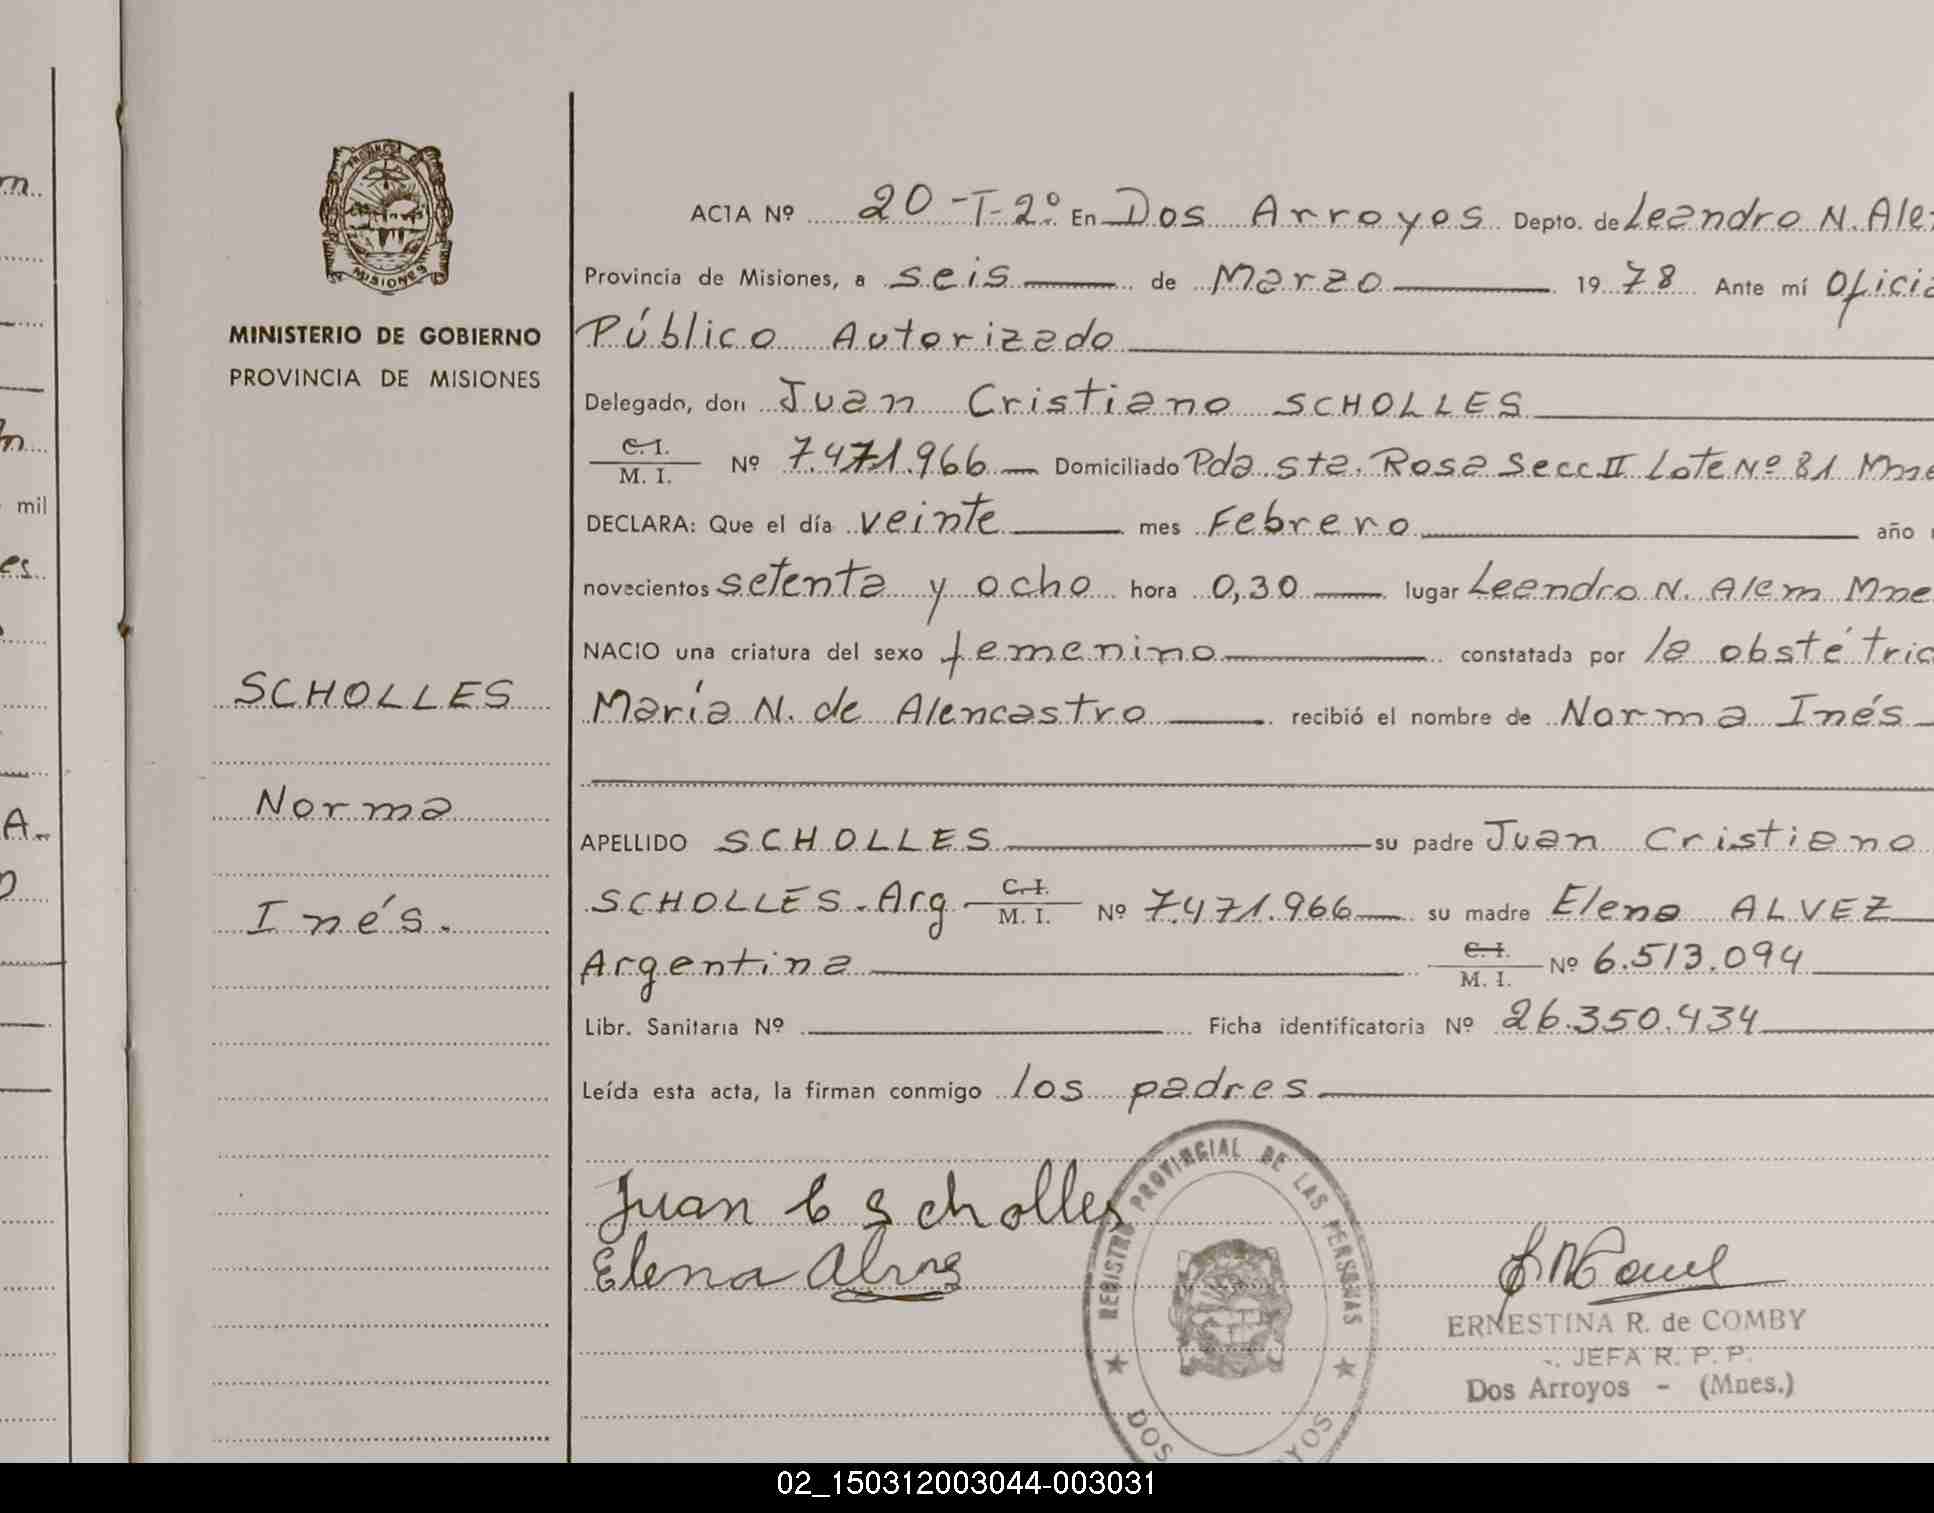 MISIONES
MINISTERIO DE GOBIERNO
PROVINCIA DE MISIONES
SCHOLLES
Norma
Inés.
ACTA Nº 20-T-2º. En Dos Arroyos Depto. de Leandro N. Ale
Provincia de Misiones, a seis de Marzo 1978 Ante mí Oficia
Público Autorizado
Delegado, don Juan Cristiano SCHOLLES
C. I.
M. I. Nº 7.471.966 Domiciliado Pda Sta. Rosa Secc II Lote Nº 81 Mne
DECLARA: Que el día veinte mes Febrero año
novecientos setenta y ocho hora 0,30 lugar Leandro N. Alem Mne
NACIO una criatura del sexo femenino constatada por la obstétric
María N. de Alencastro recibió el nombre de Norma Inés
APELLIDO SCHOLLES su padre Juan Cristiano
SCHOLLES. Arg C. I.
M. I. Nº 7.471.966 su madre Elena ALVEZ
Argentina C. I.
M. I. Nº 6.513.094
Libr. Sanitaria Nº Ficha identificatoria Nº 26.350.434
Leída esta acta, la firman conmigo los padres
Juan C Scholles
Elena Alves
REGISTRO PROVINCIAL DE LAS PERSONAS
DOS YOS
ERNESTINA R. de COMBY
JEFA R. P. P.
Dos Arroyos - (Mnes.)
mil
es
A.
02_150312003044-003031